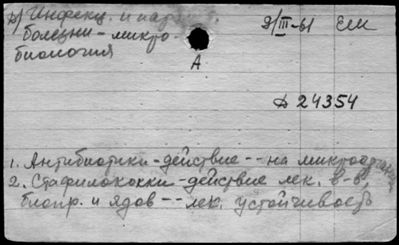 Инфекц. и пар. 9/III-61 Ели
болезни - микро-
биология
А
Д 24354
1. Антибиотики - действие -- на микроорганизмы
2. Стафилококки - действие лек. в-в,
биопр. и ядов -- лек. устойчивость